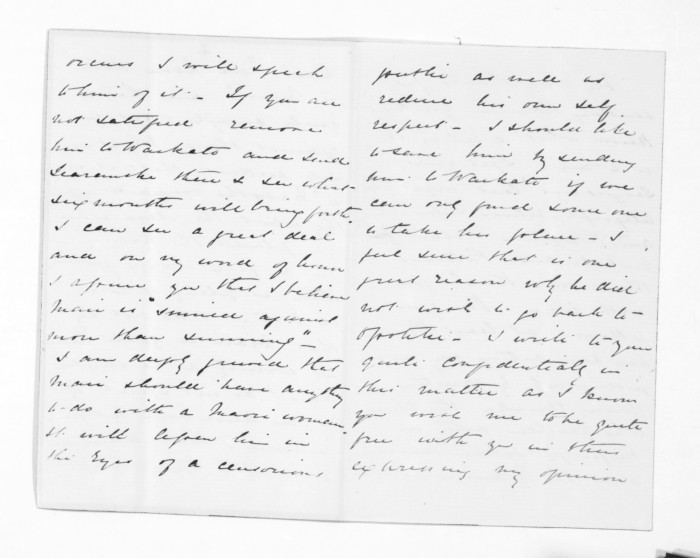 occurs I will speak
to him of it - If you are
not satisfied remove
him to Waikato and send
there & see what
six months will bring forth
I can see a great deal
and on my word of honor
I assure you that I believe
Mair is "sinned against
more than sinning" -
I am deeply grieved that
Mair should have anything
to do with a Maori woman
it will lessen him in
the Eyes of a censorious
public as well as
reduce his own self
respect - I should like
to save him by sending
him to Waikato if we
can only find some one
to take his place - I
feel sure that is one
great reason why he did
not wish to go back to
Opotiki - I write to you
quite confidentially in
this matter as I know
you wish me to be quite
free with you in thus
expressing my opinion